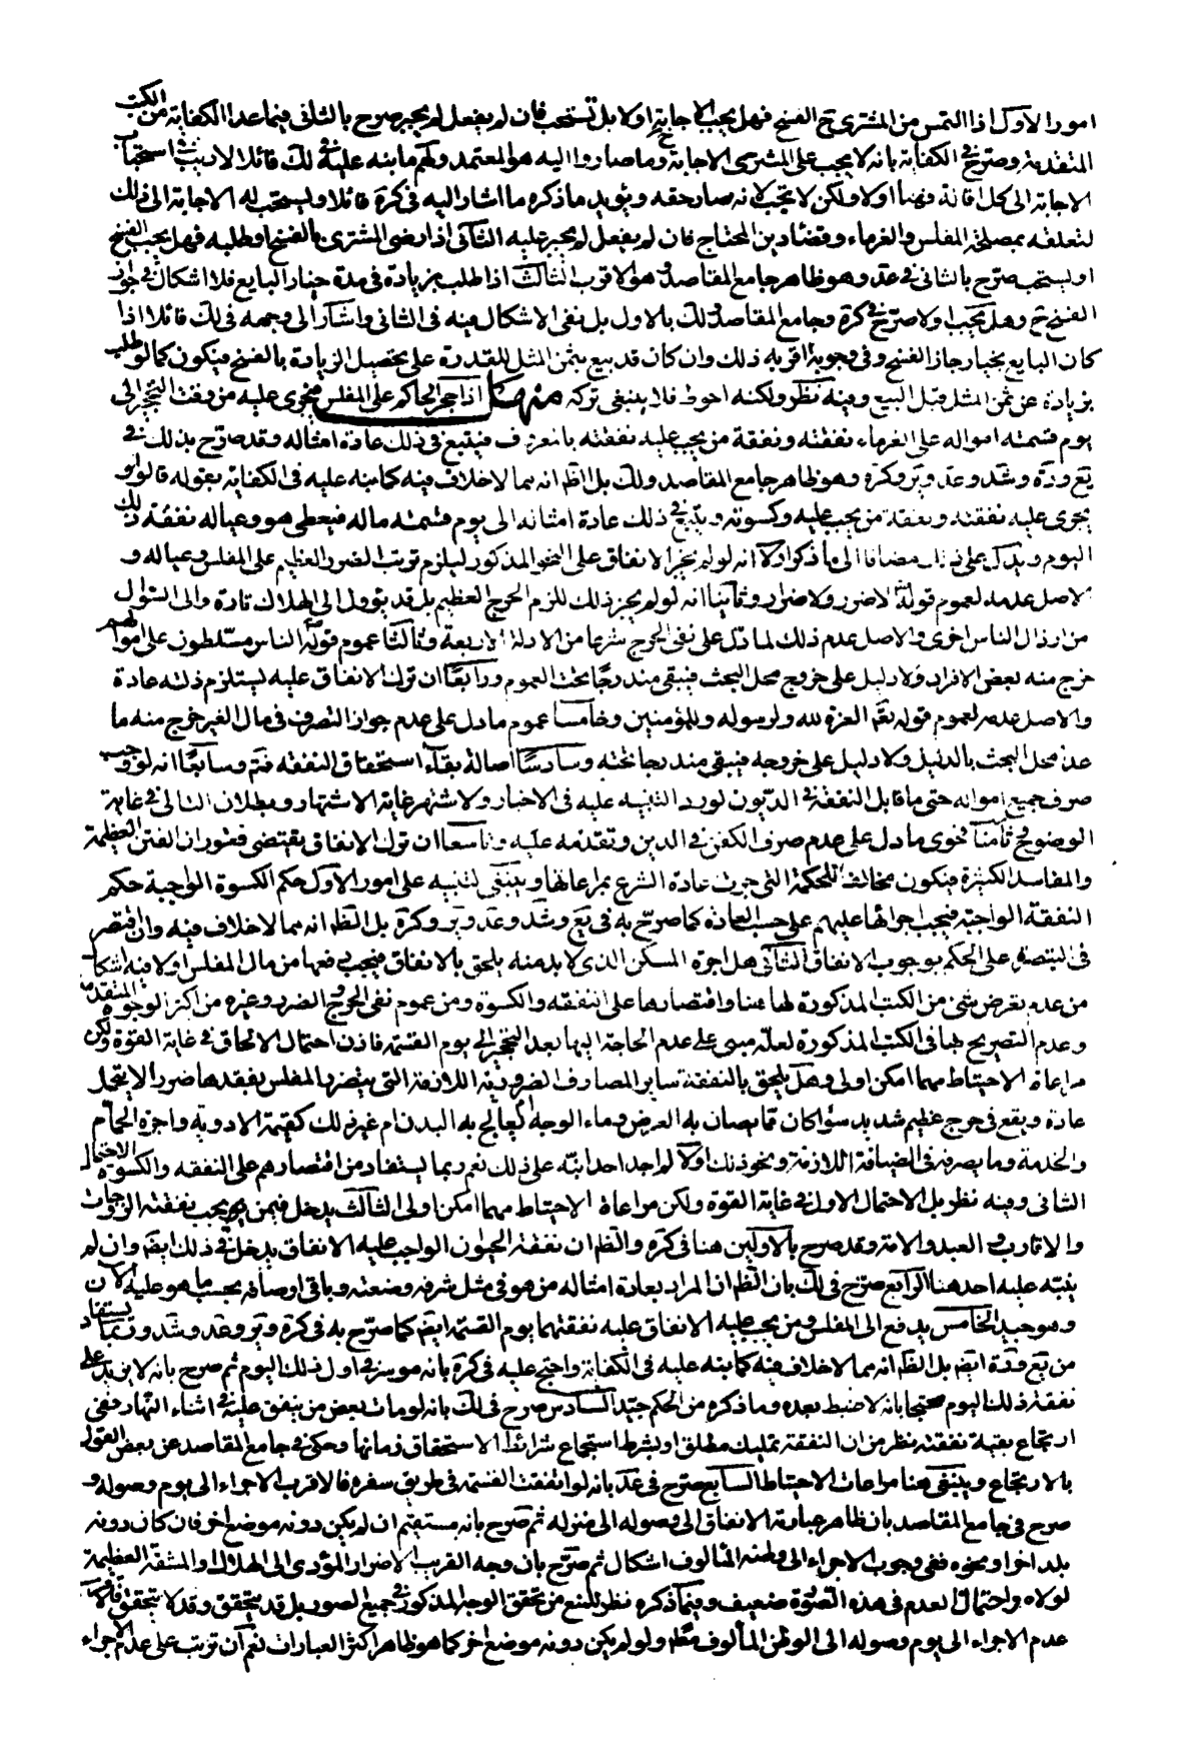 امور الاول اذا التمس من المشترى ح الفسخ فهل يجب الاجابة ح اولا بل تستحب فان لم يفعل لم يجبر صرح بالثانى فيما عدا الكفاية من الكتب
المتقدمة وصرح فى الكفاية بانه لا يجب على المشترى الاجابة وما صاروا اليه هو المعتمد ولهم ما نبه عليه فى لك قائلا لا ريب فى استحباب
الاجابة الى كل اقالة ومنها اولا ولكن لا تجب لانه صار حقه ويؤيد ما ذكره ما اشار اليه فى كرة قائلا ويستحب له الاجابة الى ذلك
لتعلقه بمصلحة المفلس والغرماء وقضاء دين المحتاج فان لم يفعل لم يجبر عليه الثانى اذا رضى المشترى بالفسخ او طلبه فهل يجب الفسخ
او يستحب صرح بالثانى فى عد وهو ظاهر جامع المقاصد وهو الاقرب الثالث اذا طلب بزيادة فى مدة خيار البايع فلا اشكال فى جواز
الفسخ ح وهل يجب اولا صرح فى كرة وجامع المقاصد ولك بالاول بل نفى الاشكال فيه فى الثانى واشار الى وجهه فى لك قائلا اذا
كان البايع بخيار جاز الفسخ وفى وجوبه اقربه ذلك وان كان قد بيع بثمن المثل للقدرة على تحصيل الزيادة بالفسخ فيكون كما لو طلب
بزيادة عن ثمن المثل قبل البيع وفيه نظر ولكنه احوط فلا ينبغى تركه منهل اذا حجر الحاكم على المفلس يجرى عليه من وقت التحجر الى
يوم قسمته امواله على الغرماء نفقته ونفقة من يجب عليه نفقته بالمعروف فيتبع فى ذلك عادة امثاله وقد صرح بذلك فى
يع ود وشد وعد وير وكرة وهو ظاهر جامع المقاصد ولك بل الظ انه مما لا خلاف فيه كما نبه عليه فى الكفاية بقوله قالوا و
يجرى عليه نفقته ونفقة من يجب عليه وكسوته ويتبع فى ذلك عادة امثاله الى يوم قسمته ماله فيعطى هو وعياله نفقة ذلك
اليوم ويدل على ذلك مضافا الى ما ذكر اولا انه لو لم يجز الانفاق على النحو المذكور ليلزم ترتب الضرر العظيم على المفلس وعياله و
الاصل عدمه لعموم قوله لا ضرر ولا ضرار وثانيا انه لو لم يجز ذلك للزم الحرج العظيم بل قد يؤول الى الهلاك تارة والى السؤال
من ارذال الناس اخرى والاصل عدم ذلك لما دل على نفى الحرج شرعا من الادلة الاربعة وثالثا عموم قوله الناس مسلطون على اموالهم
خرج منه بعض الافراد ولا دليل على خروج محل البحث فيبقى مندرجا تحت العموم ورابعا ان ترك الانفاق عليه يستلزم ذلته عادة
والاصل عدمه لعموم قوله تعم العزة لله ولرسوله وللمؤمنين وخامسا عموم ما دل على عدم جواز التصرف فى مال الغير خرج منه ما
عدا محل البحث بالدليل ولا دليل على خروجه فيبقى مندرجا تحته وسادسا اصالة بقاء استحقاق النفقه فتم وسابعا انه لو وجب
صرف جميع امواله حتى ما قابل النفقة فى الديون لورد التنبيه عليه فى الاخبار ولاشتهر غاية الاشتهار وبطلان التالى فى غاية
الوضوح وثامنا فحوى ما دل على عدم صرف الكفن فى الدين وتقدمه عليه وتاسعا ان ترك الانفاق يقتضى فوران الفتن العظيمة
والمفاسد الكثيرة فيكون مخالفا للحكمة التى جرت عادة الشرع بمراعاتها وينبغى التنبيه على امور الاول حكم الكسوة الواجبة حكم
النفقة الواجبة فيجب اجرائها عليهم على حسب العادة كما صرح به فى يع وشد وعد وير وكرة بل الظ انه مما لا خلاف فيه وان اقتصر
فى التبصرة على الحكم بوجوب الانفاق الثانى هل اجرة المسكن الذى لا بد منه يلحق بالانفاق فيجب دفعها من مال المفلس اولا فيه اشكال
من عدم تعرض شئ من الكتب المذكورة لها هنا واقتصارها على النفقه والكسوة ومن عموم نفى الحرج والضرر وغيره من اكثر الوجوه المتقدمة
وعدم التصريح بها فى الكتب المذكورة لعله مبنى على عدم الحاجة اليها بعد التحجير الى يوم القسمة فاذن احتمال الالحاق فى غاية القوة ولكن
مراعاة الاحتياط مهما امكن اولى وهل يلحق بالنفقة ساير المصارف الضرورية اللازمة التى يتضرر المفلس بفقدها ضررا لا يتحمل
عادة ويقع فى حرج عظيم شديد سواء كان مما يصان به العرض وماء الوجه ام يعالج به البدن ام غير ذلك كقيمة الادوية واجرة الحمام
والخدمة وما يصرفه فى الضيافة اللازمة ونحو ذلك اولا لم اجد احدا نبه على ذلك نعم ربما يستفاد من اقتصارهم على النفقه والكسوة الاحتمال
الثانى وفيه نظر بل الاحتمال الاول فى غاية القوة ولكن مراعاة الاحتياط مهما امكن اولى الثالث يدخل فيمن يجب نفقته الزوجات
والاقارب و العبد والامة وقد صرح بالاولين هنا فى كره والظ ان نفقة الحيوان الواجب عليه الانفاق يدخل فى ذلك ايضا وان لم
ينبه عليه احد هنا الرابع صرح فى لك بان الظ ان المراد بعادة امثاله من هو فى مثل شرفه وضعته وباقى اوصافه بحسب ما هو عليه الآن
وهو جيد الخامس يدفع الى المفلس ومن يجب عليه الانفاق عليه نفقتهما يوم القسمة ايضا كما صرح به فى كرة وير وعد وشد وربما يستفاد
من يع ود ايضا بل الظ انه مما لا خلاف فيه كما نبه عليه فى الكفاية واحتج عليه فى كره بانه موسر فى اول ذلك اليوم ثم صرح بانه لا يزيد على
نفقة ذلك اليوم محتجا بانه لا ضبط بعده وما ذكره من الحكم جيد السادس صرح فى لك بانه لو مات بعض من ينفق عليه فى اثناء النهار ففى
ارتجاع بقية نفقته نظر من ان النفقة تمليك مطلق او بشرط استجماع شرائط الاستحقاق زمانها وحكى فى جامع المقاصد عن بعض القول
بالارتجاع وينبغى هنا مراعات الاحتياط السابع صرح فى عد بانه لو اتفقت القسمة فى طريق سفره فالاقرب الاجراء الى يوم وصوله و
صرح فى جامع المقاصد بان ظاهر عبارته الانفاق الى وصوله الى منزله ثم صرح بانه مستقيم ان لم يكن دونه موضع اخر فان كان دونه
بلد اخر او نحوه ففى وجوب الاجراء الى وطنه المألوف اشكال ثم صرح بان وجه القرب الاضرار المؤدى الى الهلاك والمشقة العظيمة
لولاه واحتمال العدم فى هذه الصورة ضعيف وفيما ذكره نظر للمنع من تحقق الوجه المذكور فى جميع الصور بل قد يتحقق وقد لا يتحقق
عدم الاجراء الى يوم وصوله الى الوطن المألوف مط ولو لم يكن دونه موضع اخر كما هو ظاهر اكثر العبارات نعم ان ترتب على عدم الاجراء